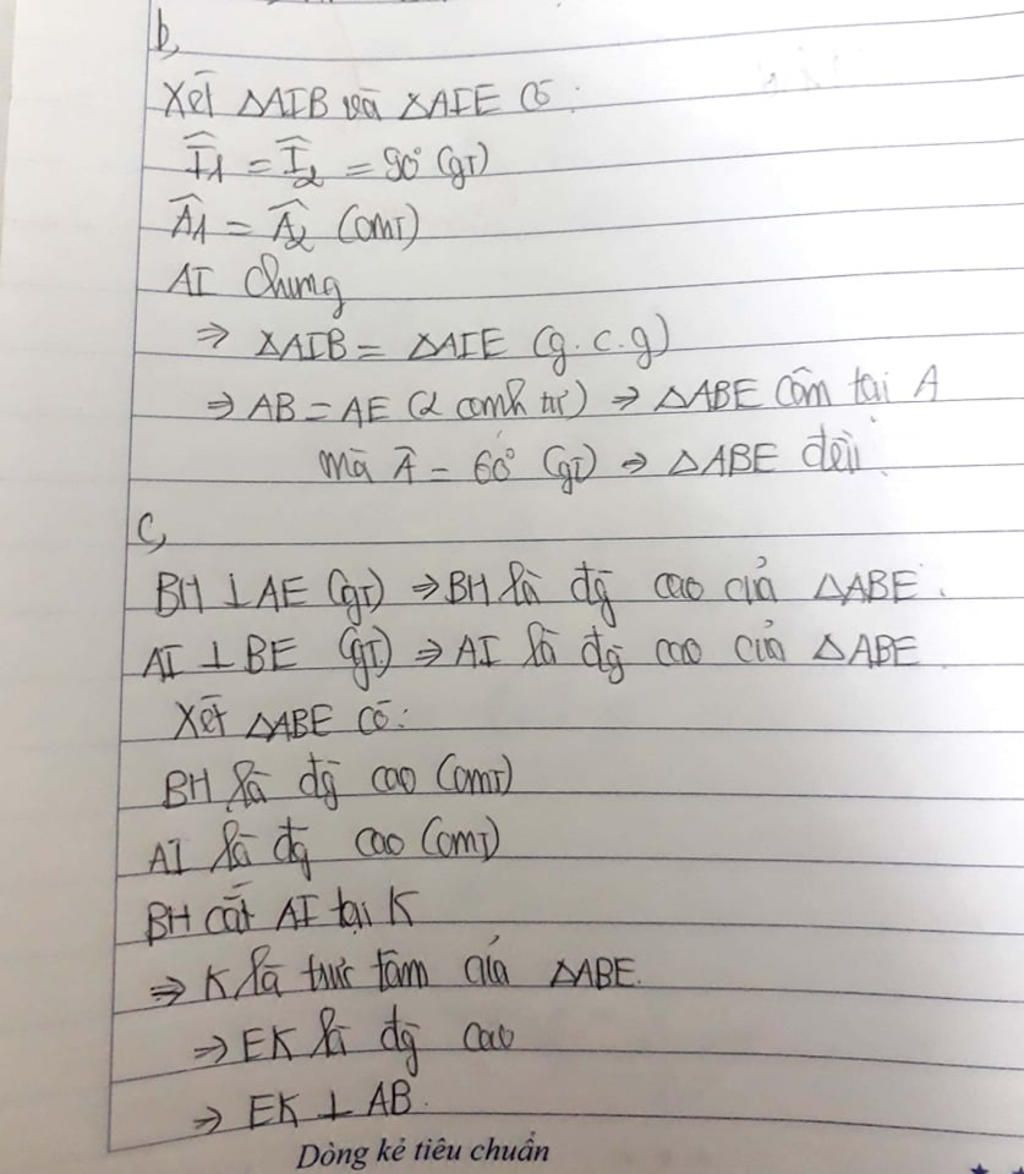 b,
Xét ΔAIB và ΔAIE có :
Î1 = Î2 = 90° (gt)
Â1 = Â2 (cmt)
AI chung
⇒ ΔAIB = ΔAIE (g.c.g)
⇒ AB = AE (2 cạnh tư) ⇒ ΔABE cân tại A
mà Â = 60° (gt) ⇒ ΔABE đều.
c,
BH ⊥ AE (gt) ⇒ BH là đg cao của ΔABE.
AI ⊥ BE (gt) ⇒ AI là đg cao của ΔABE
Xét ΔABE có:
BH là đg cao (cmt)
AI là đg cao (cmt)
BH cắt AI tại K
⇒ K là trực tâm của ΔABE.
⇒ EK là đg cao
⇒ EK ⊥ AB.
Dòng kẻ tiêu chuẩn